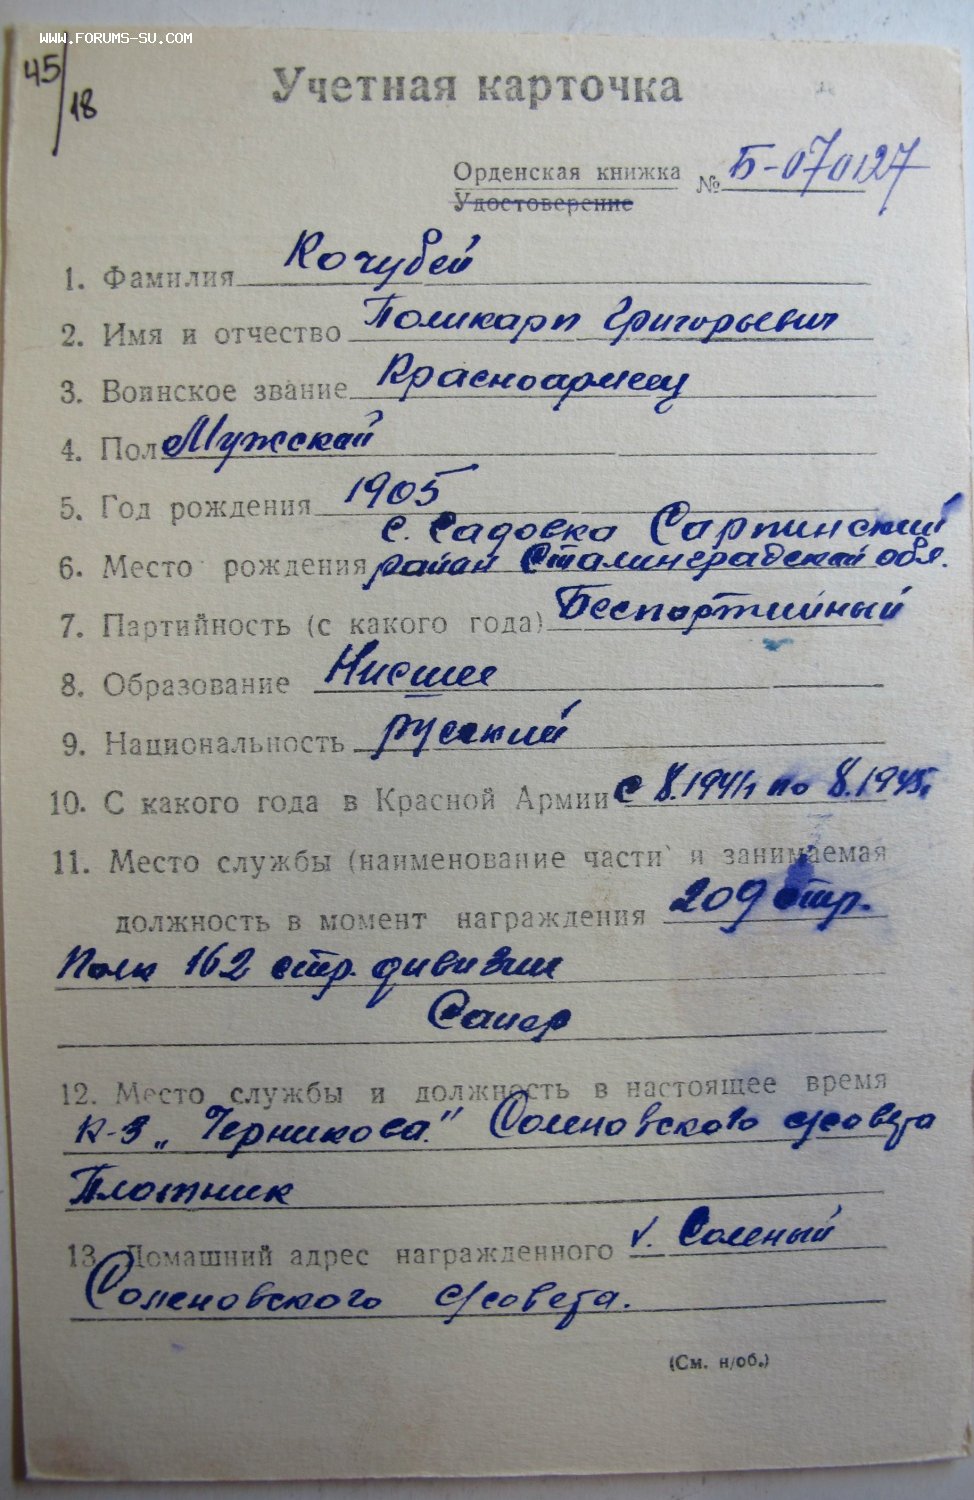 www.forums-su.com
45/18
Учетная карточка
Орденская книжка № Б-070127
Удостоверение
1. Фамилия Кочубей
2. Имя и отчество Поликарп Григорьевич
3. Воинское звание Красноармеец
4. Пол Мужской
5. Год рождения 1905
с. Садовка Сарпинский
6. Место рождения район Сталинградской обл.
7. Партийность (с какого года) Беспартийный
8. Образование Нисшее
9. Национальность русский
10. С какого года в Красной Армии с 8.1941 по 8.1945г.
11. Место службы (наименование части и занимаемая
должность в момент награждения 209 стр.
Полк 162 стр. дивизии
Сапер
12. Место службы и должность в настоящее время
К-з „Черникова." Соленовского с/совета
Плотник
13. Домашний адрес награжденного Соленый
Соленовского с/совета.
(См. н/об.)